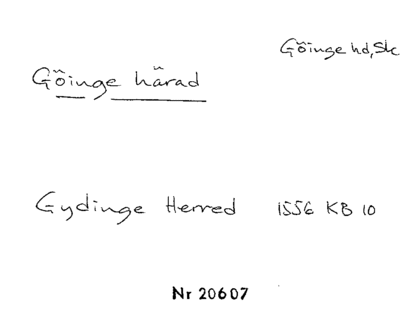 Göinge hd, Sk
Göinge härad
Gydinge Herred 1556 KB 10
Nr 20607